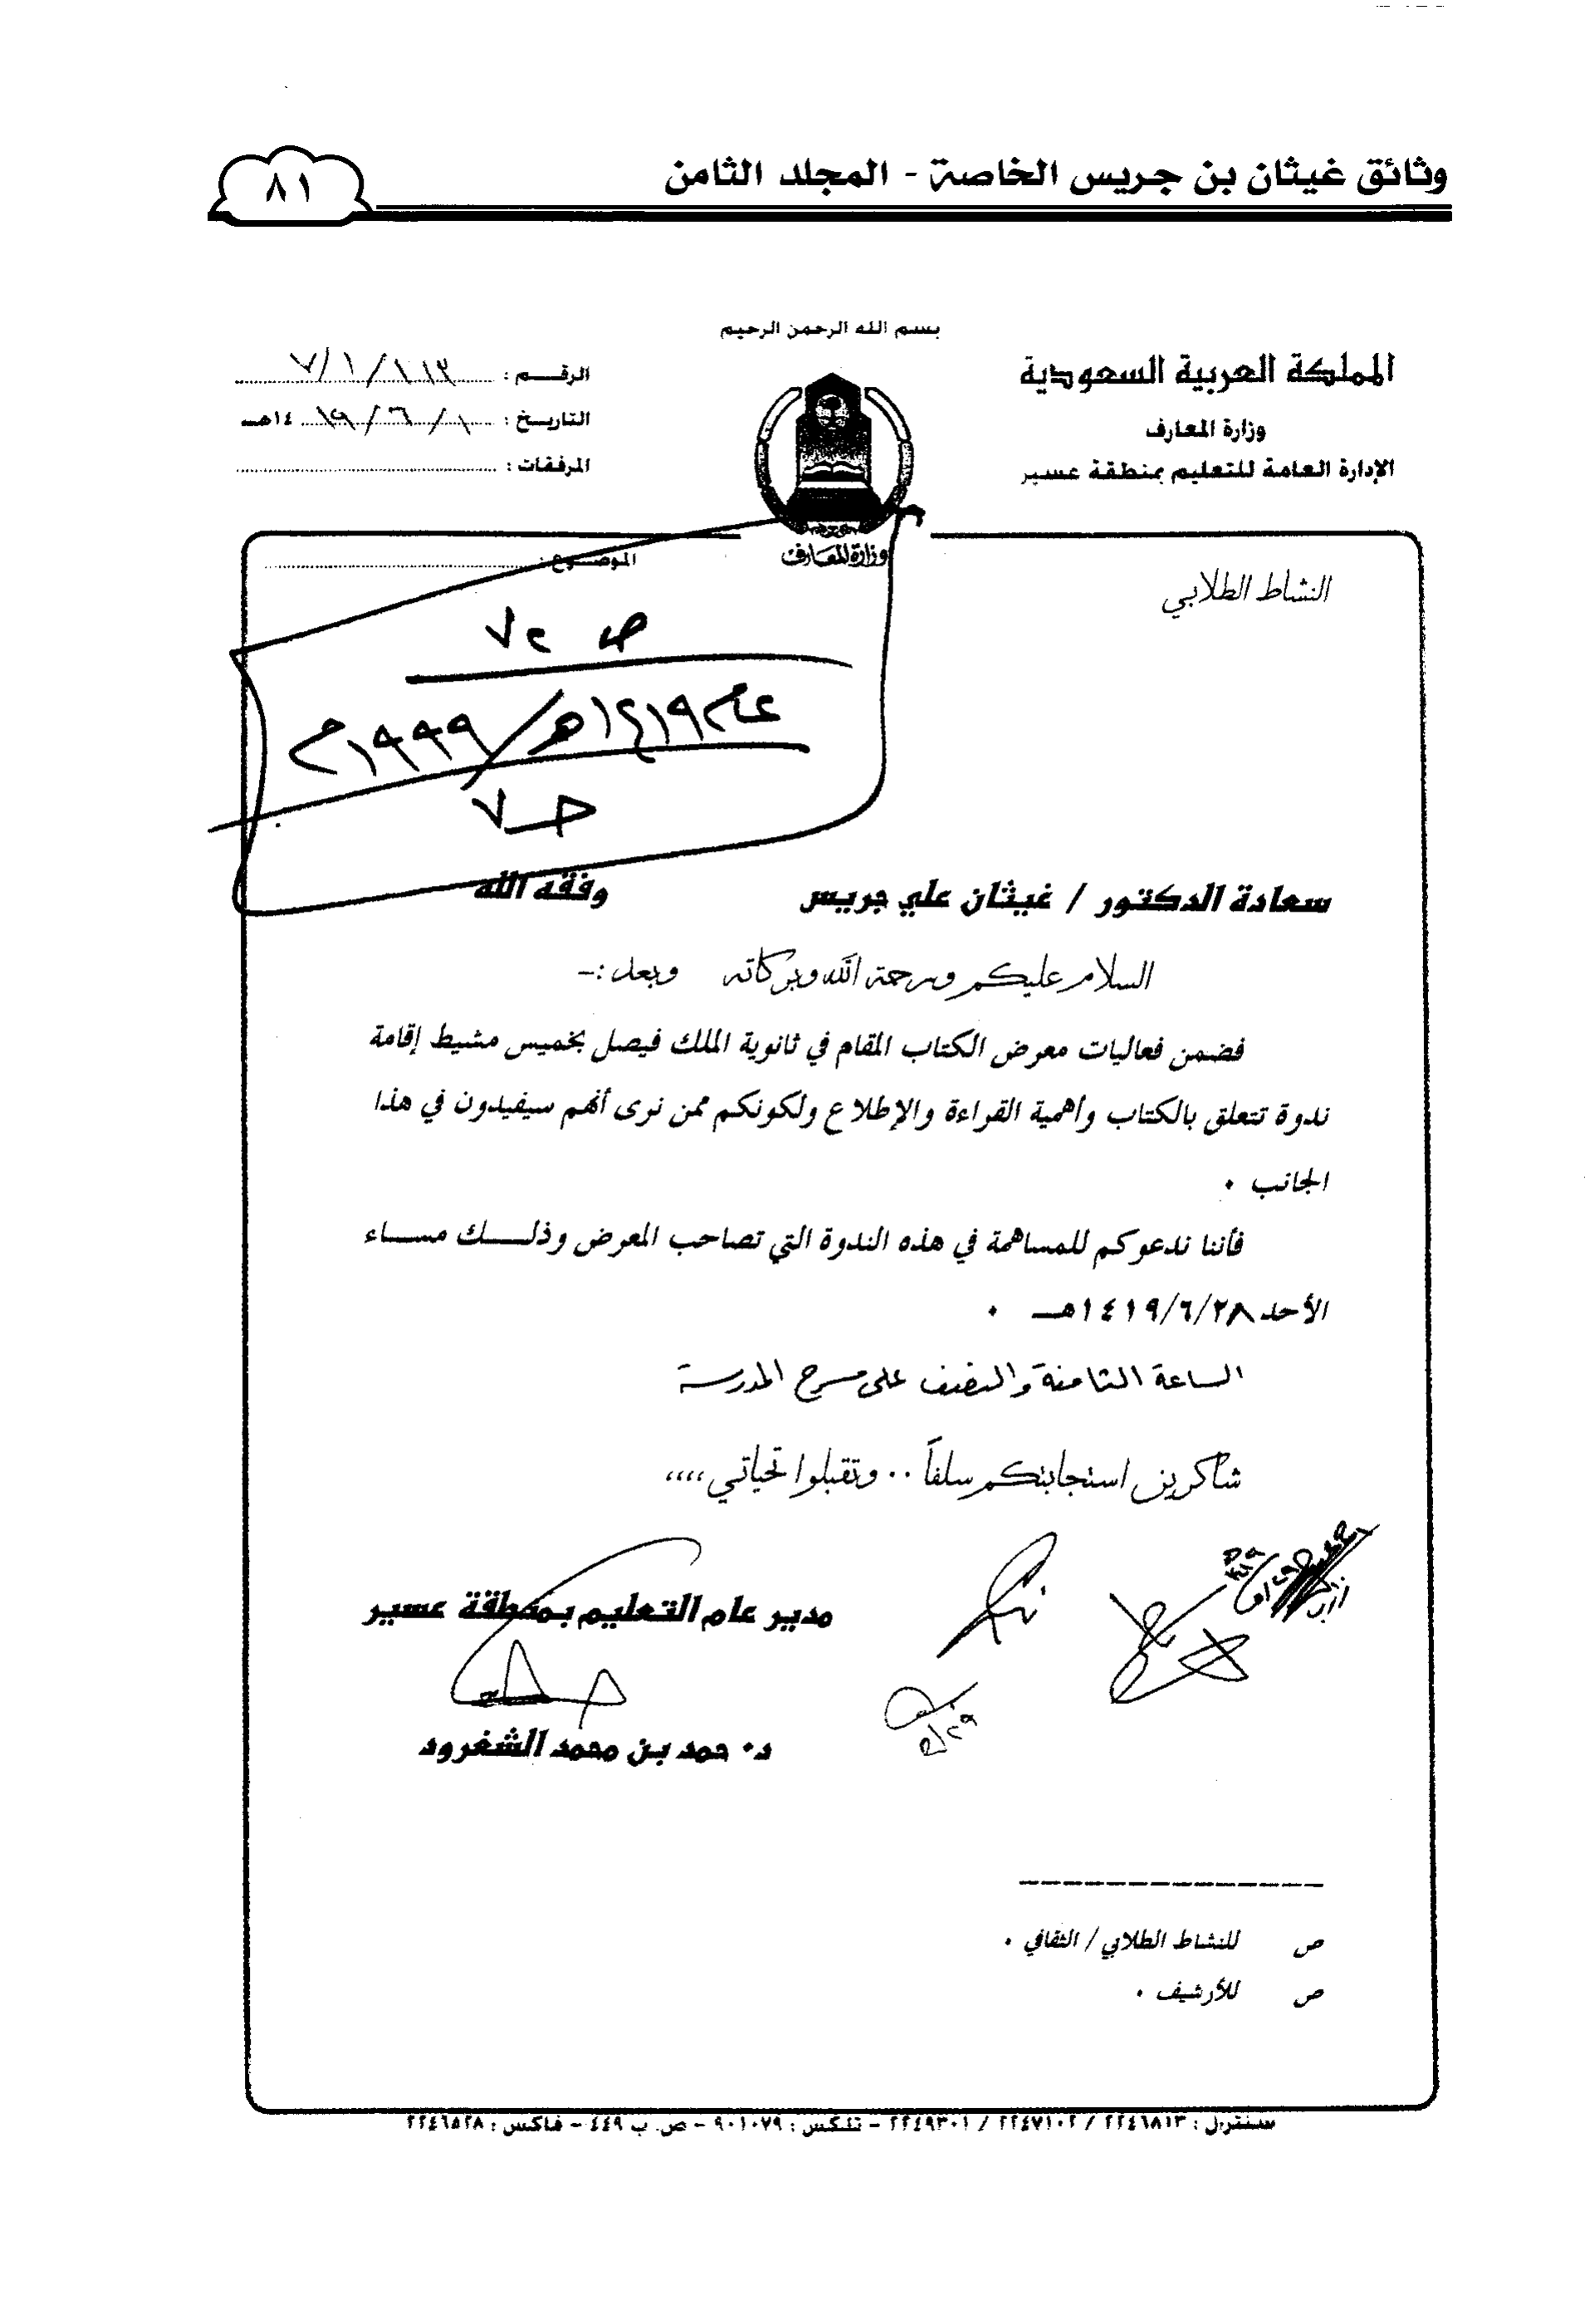 وثائق غيثان بن جريس الخاصة - المجلد الثامن
٨١
بسم الله الرحمن الرحيم
المملكة العربية السعودية
وزارة المعارف
الإدارة العامة للتعليم بمنطقة عسير
الرقـــم :
التاريـخ : ١٩/٦/ ١٤هـ
المرفقات :
وزارة المعارف
الموضـــوع :
النشاط الطلابي
ص ٧٢
عام ١٤١٩هـ/١٩٩٩م
حـ٧
سعادة الدكتور / غيثان علي جريس وفقه الله
السلام عليكم ورحمة الله وبركاته وبعد :-
فضمن فعاليات معرض الكتاب المقام في ثانوية الملك فيصل بخميس مشيط إقامة
ندوة تتعلق بالكتاب وأهمية القراءة والإطلاع ولكونكم ممن نرى أنهم سيفيدون في هذا
الجانب ٠
فأننا ندعوكم للمساهمة في هذه الندوة التي تصاحب المعرض وذلـــك مســاء
الأحد ١٤١٩/٦/٢٨هــ ٠
الساعة الثامنة والنصف على مسرح المدرسة
شاكرين استجابتكم سلفاً ٠٠ وتقبلوا تحياتي ،،،،
مدير عام التعليم بمنطقة عسير
د٠ حمد بن محمد الشغرود
ص للنشاط الطلابي / الثقافي ٠
ص للأرشيف ٠
سنترال : ٢٢٤٦٨١٣ / ٢٢٤٧١٠٢ / ٢٢٤٩٣٠١ - تلكس : ٩٠١٠٧٩ - ص. ب ٤٤٩ - فاكس : ٢٢٤٦٥٢٨